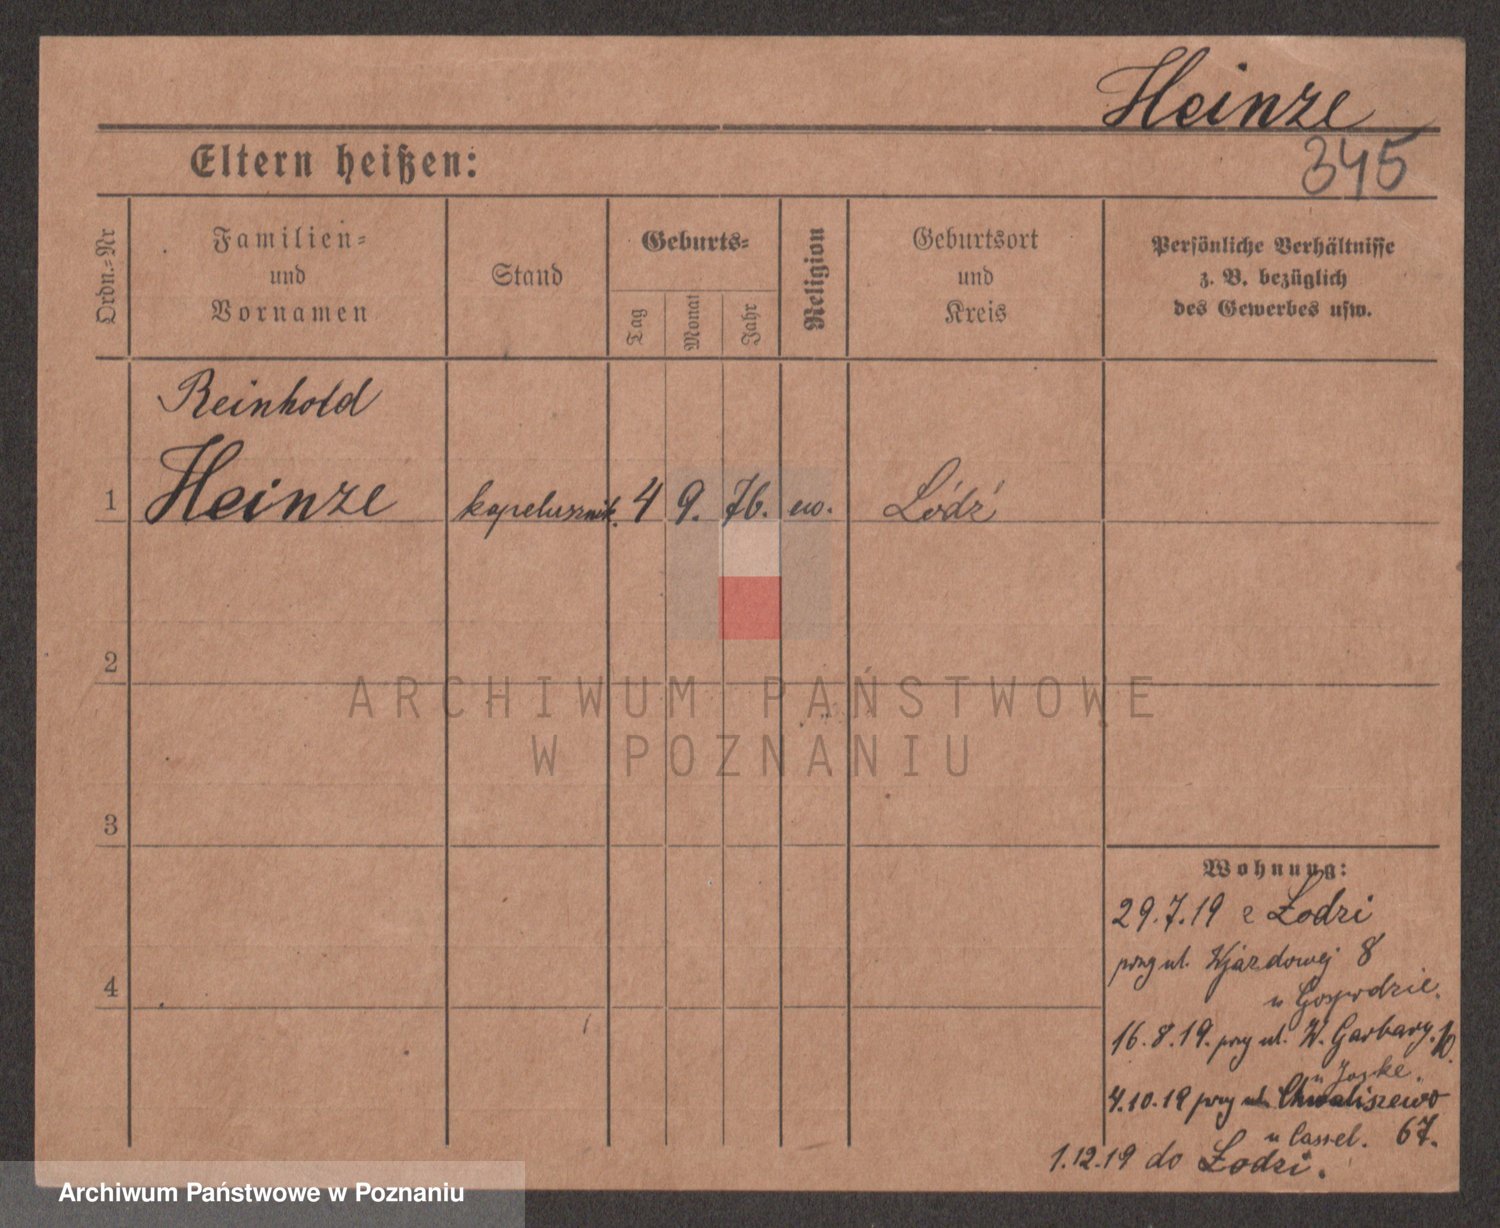 Heinze
345
Eltern heißen:
Ordn.=Nr
Familien=
und
Vornamen
Stand
Geburts=
Tag
Monat
Jahr
Religion
Geburtsort
und
Kreis
Persönliche Verhältnisse
z. B. bezüglich
des Gewerbes usw.
Reinhold
1 Heinze kapelusznik. 4 9. 76. ew. Łódź
2
3
4
Wohnung:
29.7.19 z Łodzi
przy ul. Wjazdowej 8
u Gospodzie.
16.8.19. przy ul. W. Garbary.
4.10.19 przy ul. Chwaliszewo
u Cassel. 67.
1.12.19 do Łodzi.
ARCHIWUM PAŃSTWOWE
W POZNANIU
Archiwum Państwowe w Poznaniu